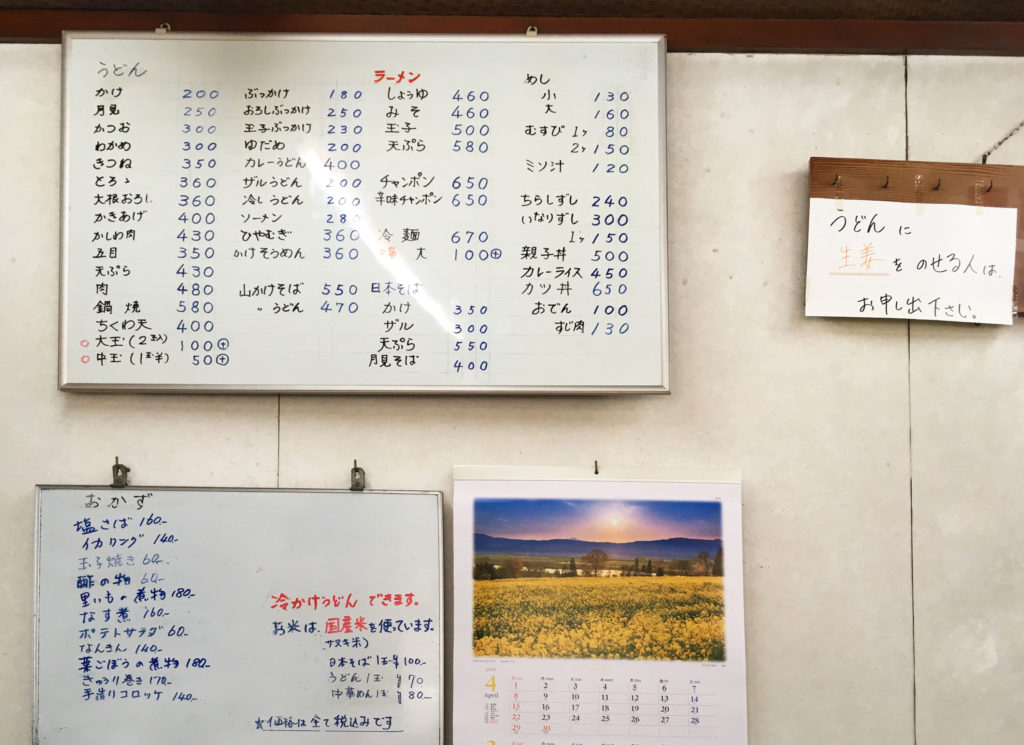 うどん
かけ 200
月見 250
かつお 300
わかめ 300
きつね 350
とろゝ 360
大根おろし 360
かきあげ 400
かしわ肉 430
五目 350
天ぷら 430
肉 480
鍋焼 580
ちくわ天 400
○大玉(2玉入) 100㊉
○中玉(1玉半) 50㊉
ぶっかけ 180
おろしぶっかけ 250
玉子ぶっかけ 230
ゆだめ 200
カレーうどん 400
ザルうどん 200
冷しうどん 200
ソーメン 280
ひやむぎ 360
かけそうめん 360
山かけそば 550
〃うどん 470
ラーメン
しょうゆ 460
みそ 460
玉子 500
天ぷら 580
チャンポン 650
辛味チャンポン 650
冷麺 670
大 100㊉
日本そば
かけ 350
ザル 300
天ぷら 550
月見そば 400
めし
小 130
大 160
むすび 1ケ 80
2ケ 150
ミソ汁 120
ちらしずし 240
いなりずし 300
1ケ 150
親子丼 500
カレーライス 450
カツ丼 650
おでん 100
すじ肉 130
うどんに
生姜をのせる人は、
お申し出下さい。
おかず
塩さば 160-
イカリング 140-
玉子焼き 60-
酢の物 60-
里いもの煮物 180-
なす煮 160-
ポテトサラダ 60-
なんきん 140-
葉ごぼうの煮物 180-
きゅうり巻き 170-
手造りコロッケ 140-
冷かけうどんできます。
お米は、国産米を使っています。
サヌキ米)
日本そば1玉 ¥100-
うどん1玉 ¥70
中華めん1玉 ¥80-
☆価格は全て税込みです
4
April
1 2 3 4 5 6 7
8 9 10 11 12 13 14
15 16 17 18 19 20 21
22 23 24 25 26 27 28
29 30